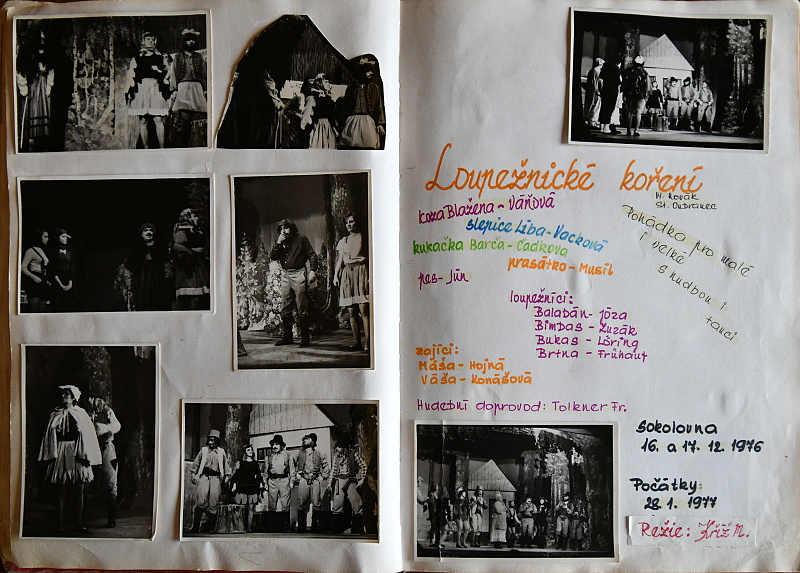 Loupežnické koření
H. Novák
St. Oubranec
koza Blažena - Váňová
slepice Líba - Vacková
kukačka Barča - Čadková
prasátko - Musil
pes - Jůn
Pohádka pro malé
i velké
s hudbou i
tanci
loupežníci:
Balabán - Józa
Bimbas - Žuzák
Bukas - Löring
Brtna - Frühauf
zajíci:
Máša - Hojná
Váša - Konášová
Hudební doprovod: Tolkner Fr.
Sokolovna
16. a 17. 12. 1976
Počátky:
28. 1. 1977
Režie: Kříž M.